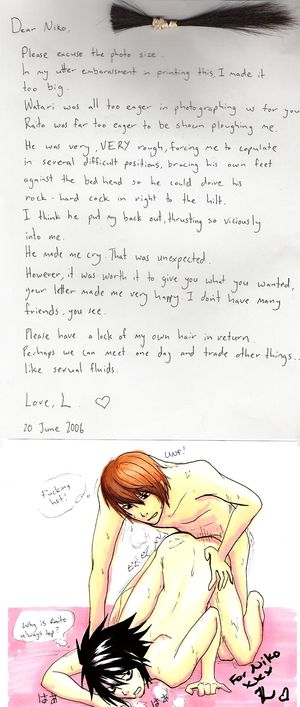 Dear Niko,
Please excuse the photo size.
In my utter embarassment in printing this, I made it
too big.
Watari was all too eager in photographing us for you
Raito was far too eager to be shown ploughing me.
He was very, VERY rough, forcing me to copulate
in several difficult positions, bracing his own feet
against the bed head so he could drive his
rock-hard cock in right to the hilt.
I think he put my back out, thrusting so viciously
into me.
He made me cry. That was unexpected.
However, it was worth it to give you what you wanted,
your letter made me very happy. I don't have many
friends, you see.
Please have a lock of my own hair in return.
Perhaps we can meet one day and trade other things...
like sexual fluids.
Love, L ♡
20 June 2006
UNF!
Fucking
hot!
Why is Raito
always top?
はぁ
はぁ
For Niko
xxx
L ♡